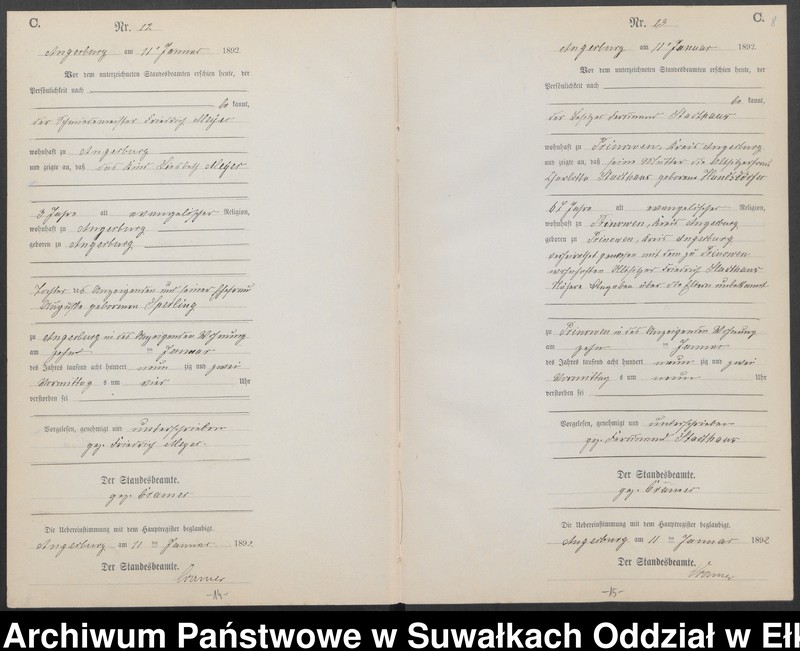 C.
Nr. 12
Angerburg am 11ten Januar 1892.
Vor dem unterzeichneten Standesbeamten erschien heute, der
Persönlichkeit nach
be kannt,
der Schmiedemeister Friedrich Meyer
wohnhaft zu Angerburg
und zeigte an, daß das Kind Meyer
3 Jahre alt evangelischer Religion,
wohnhaft zu Angerburg
geboren zu Angerburg
Tochter des Anzeigenden und seiner Ehefrau
Auguste geborenen Sperling
zu Angerburg in des Anzeigenden Wohnung
am zehn ten Januar
des Jahres tausend acht hundert neun zig und zwei
Vormittag s um vier Uhr
verstorben sei
Vorgelesen, genehmigt und unterschrieben
gez. Friedrich Meyer.
Der Standesbeamte.
gez. Cramer
Die Uebereinstimmung mit dem Hauptregister beglaubigt.
Angerburg am 11 ten Januar 1892
Der Standesbeamte.
Cramer
-14-
C. 8
Nr. 13
Angerburg am 11ten Januar 1892.
Vor dem unterzeichneten Standesbeamten erschien heute, der
Persönlichkeit nach
be kannt,
der Besitzer Ferdinand Stadthaus
wohnhaft zu Prinowen, Kreis Angerburg
und zeigte an, daß seine Mutter die Altsitzerfrau
Charlotte Stadthaus geborene
67 Jahre alt evangelischer Religion,
wohnhaft zu Prinowen, Kreis Angerburg
geboren zu Prinowen, Kreis Angerburg
verheirathet gewesen mit dem zu Prinowen
wohnhaften Altsitzer Friedrich Stadthaus
Nähere Angaben über die Eltern unbekannt
zu Prinowen in des Anzeigenden Wohnung
am zehn ten Januar
des Jahres tausend acht hundert neun zig und zwei
Vormittag s um neun Uhr
verstorben sei
Vorgelesen, genehmigt und unterschrieben
gez. Ferdinand Stadthaus
Der Standesbeamte.
gez. Cramer
Die Uebereinstimmung mit dem Hauptregister beglaubigt.
Angerburg am 11 ten Januar 1892
Der Standesbeamte.
Cramer
-15-
Archiwum Państwowe w Suwałkach Oddział w Ełk